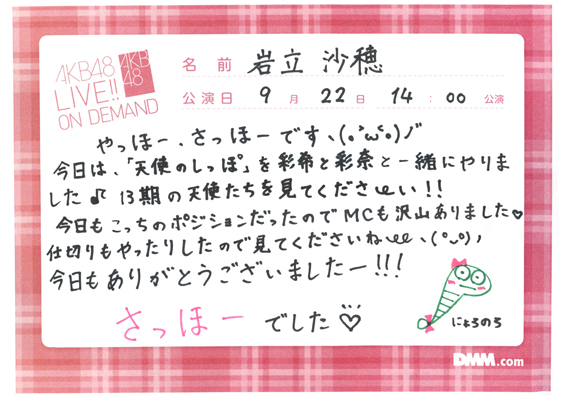 AKB48
LIVE!!
ON DEMAND
AKB
48
名前 岩立 沙穂
公演日 9月 22日 14:00 公演
やっほー、さっほーです、(｡°ω°｡)ﾉﾞ
今日は、「天使のしっぽ」を彩希と彩奈と一緒にやりま
した♪ 13期の天使たちを見てくださぁーい!!
今日もこっちのポジションだったのでMCも沢山ありました♡
仕切りもやったりしたので見てくださいねぇぇヽ(°◡°)ﾉ
今日もありがとうございましたー!!!
さっほー でした♡
にょろのろ
DMM.com